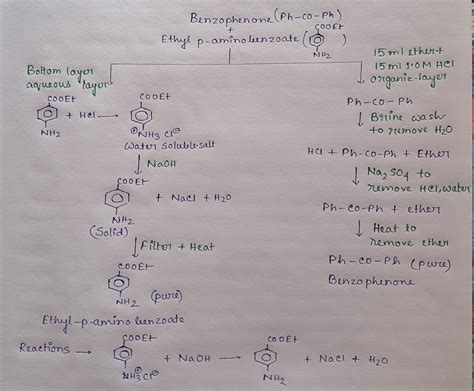 Benzophenone (Ph-CO-Ph)
+
Ethyl p-aminobenzoate (
COOEt
NH2
)
Bottom layer
aqueous layer
15 ml ether +
15 ml 1.0M HCl
organic-layer
COOEt
NH2
+ HCl →
COOEt
⊕NH3 Cl⊖
Water soluble salt
↓ NaOH
COOEt
NH2
+ NaCl + H2O
(Solid)
↓ Filter + Heat
COOEt
NH2
(pure)
Ethyl-p-amino benzoate
Ph-CO-Ph
↓ Brine wash
to remove H2O
HCl + Ph-CO-Ph + Ether
↓ Na2SO4 to
remove HCl, water
Ph-CO-Ph + ether
↓ Heat to
remove ether
Ph-CO-Ph (pure)
Benzophenone
Reactions →
COOEt
NH3 Cl⊖
+ NaOH →
COOEt
NH2
+ NaCl + H2O